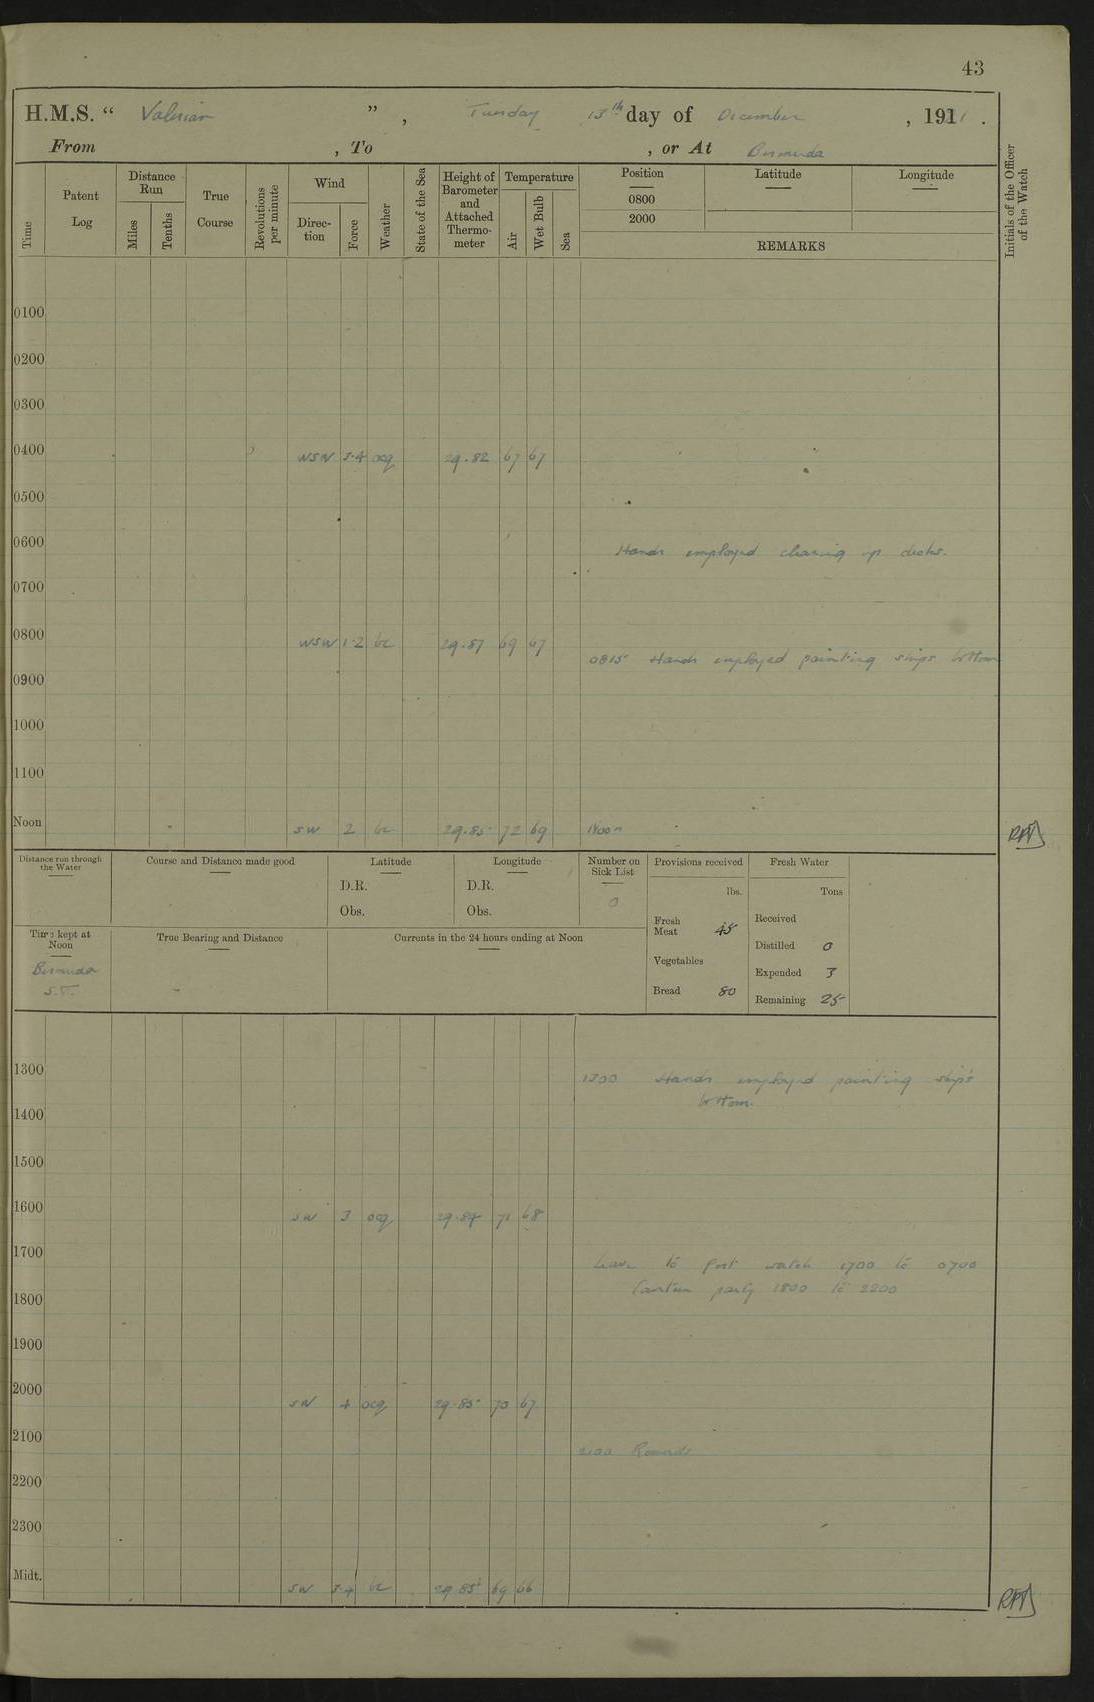 43
H.M.S. “ Valerian ” , Tuesday 13th day of December , 191 .
From , To , or At Bermuda
Time
Patent Log
Distance Run
Miles
Tenths
True Course
Revolutions per minute
Wind
Direc-tion
Force
Weather
State of the Sea
Height of Barometer and Attached Thermo-meter
Temperature
Air
Wet Bulb
Sea
Position
0800
2000
Latitude
Longitude
REMARKS
Initials of the Officer of the Watch
0100
0200
0300
0400 WSW 3·4 ocq 29.82 67 67
0500
0600 Hands employed clearing up decks.
0700
0800 WSW 1·2 bc 29.87 69 67
0815 Hands employed painting ships bottom
0900
1000
1100
Noon SW 2 bc 29.85 72 69 Noon
Distance run through the Water
Course and Distance made good
Latitude
D.R.
Obs.
Longitude
D.R.
Obs.
Number on Sick List
0
Provisions received
lbs.
Fresh Meat 45
Vegetables
Bread 80
Fresh Water
Tons
Received
Distilled 0
Expended 3
Remaining 25
Time kept at Noon
Bermuda
S.T.
True Bearing and Distance
Currents in the 24 hours ending at Noon
1300 1300 Hands employed painting ship's
bottom.
1400
1500
1600 SW 3 ocq 29.87 71 68
1700 Leave to Port watch 1700 to 0700
Canteen party 1800 to 2200
1800
1900
2000 SW 4 ocq 29.85 70 67
2100 2100 Rounds
2200
2300
Midt. SW 3·4 bc 29.85 69 66